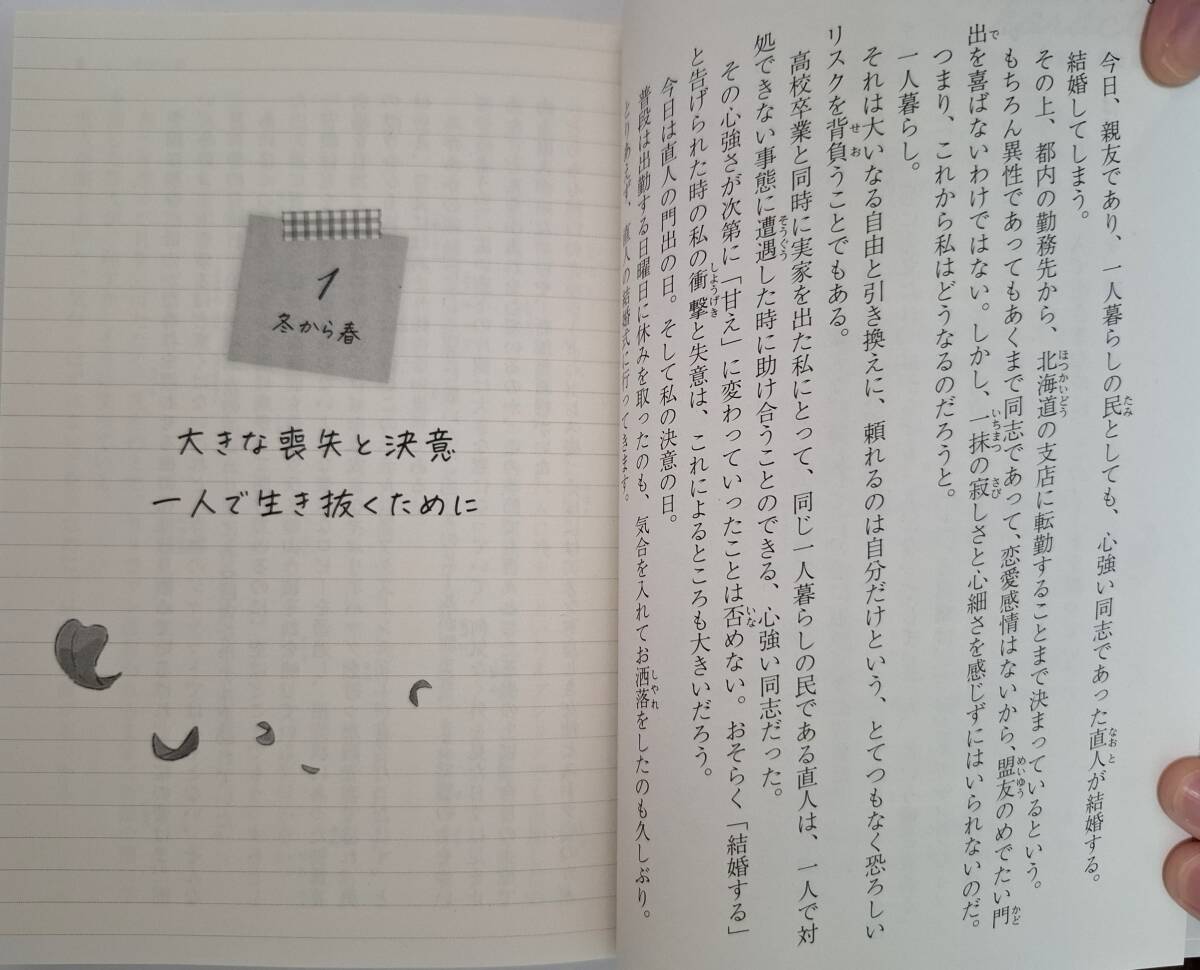 1
冬から春
大きな喪失と決意
一人で生き抜くために
今日、親友であり、一人暮らしの民としても、心強い同志であった直人が結婚する。
結婚してしまう。
その上、都内の勤務先から、北海道の支店に転勤することまで決まっているという。
もちろん異性であってもあくまで同志であって、恋愛感情はないから、盟友のめでたい門
出を喜ばないわけではない。しかし、一抹の寂しさと心細さを感じずにはいられないのだ。
つまり、これから私はどうなるのだろうと。
一人暮らし。
それは大いなる自由と引き換えに、頼れるのは自分だけという、とてつもなく恐ろしい
リスクを背負うことでもある。
高校卒業と同時に実家を出た私にとって、同じ一人暮らしの民である直人は、一人で対
処できない事態に遭遇した時に助け合うことのできる、心強い同志だった。
その心強さが次第に「甘え」に変わっていったことは否めない。おそらく「結婚する」
と告げられた時の私の衝撃と失意は、これによるところも大きいだろう。
今日は直人の門出の日。そして私の決意の日。
普段は出勤する日曜日に休みを取ったのも、気合を入れてお洒落をしたのも久しぶり。
とりあえず、直人の結婚式に行ってきます。